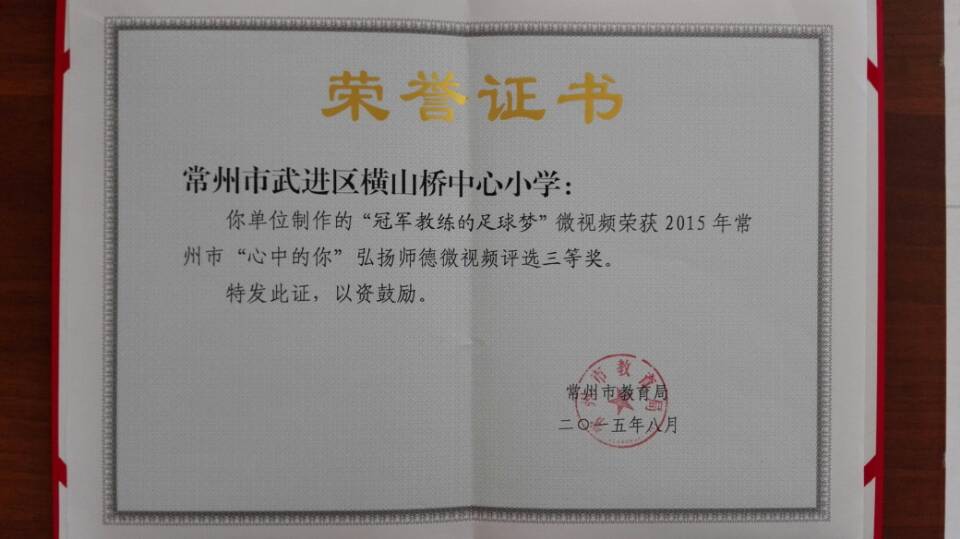 荣誉证书
常州市武进区横山桥中心小学：
你单位制作的“冠军教练的足球梦”微视频荣获 2015 年常
州市“心中的你”弘扬师德微视频评选三等奖。
特发此证，以资鼓励。
常州市教育局
常州市教育局
二〇一五年八月